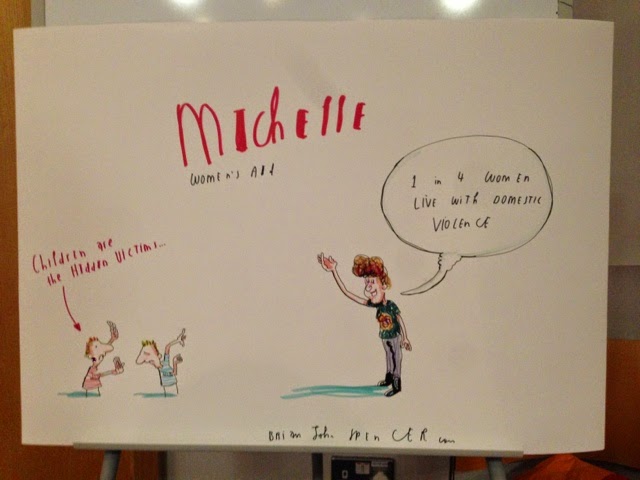 Michelle
WOMEN'S AID
1 in 4 WOMEN
LIVE WITH DOMESTIC
VIOLENCE
Children are
the HIDDEN VICTIMS...
BRIAN John SPENCER.com